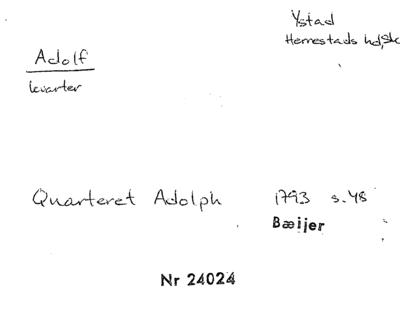 Ystad
Herrestads hd, Sk
Adolf
kvarter
Quarteret Adolph 1793 s. 48
Bæijer
Nr 24024